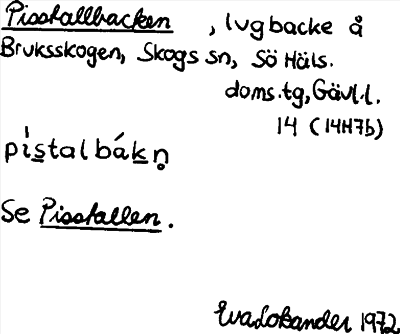 Pisstallbacken , lvgbacke å
Bruksskogen, Skogs sn, Sö Häls.
doms.tg, Gävl.l.
14 (14H7b)
pístalbákn̥
Se Pisstallen.
Eva Lobander 1972